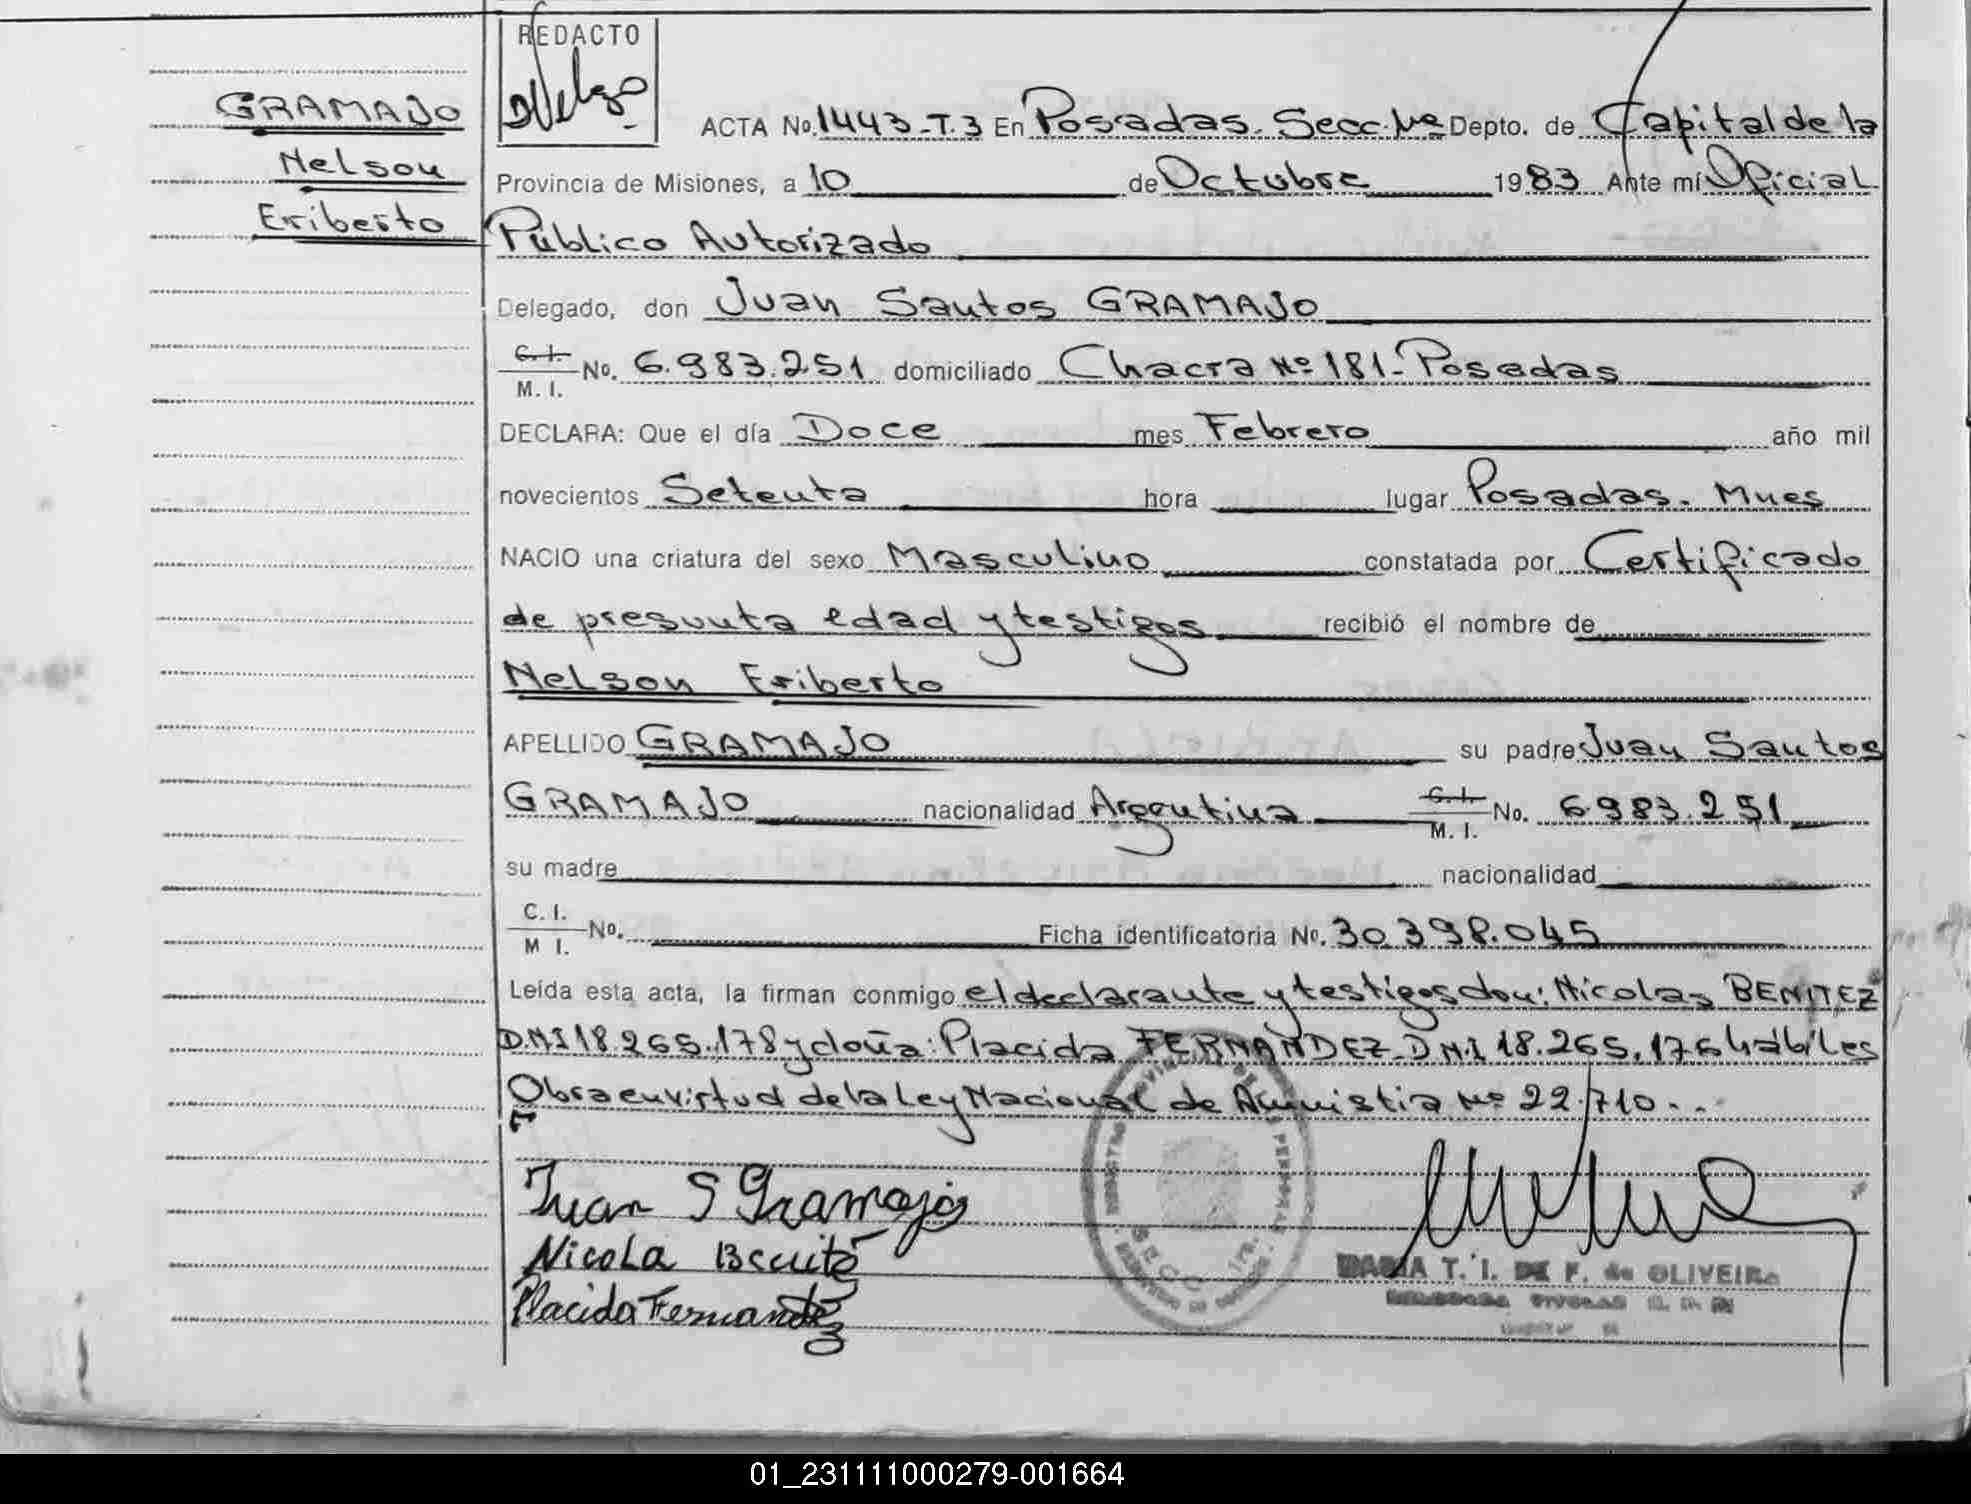 GRAMAJO
Nelson
Eriberto
REDACTO
ACTA No. 1443-T.3 En Posadas. Secc. 1ra Depto. de Capital de la
Provincia de Misiones, a 10 de Octubre 1983 Ante mí Oficial
Público Autorizado
Delegado, don Juan Santos GRAMAJO
C.I.
M. I. No. 6.983.251 domiciliado Chacra Nº 181-Posadas
DECLARA: Que el día Doce mes Febrero año mil
novecientos Setenta hora lugar Posadas. Mnes
NACIO una criatura del sexo Masculino constatada por Certificado
de presunta edad y testigos recibió el nombre de
Nelson Eriberto
APELLIDO GRAMAJO su padre Juan Santos
GRAMAJO nacionalidad Argentina C.I.
M. I. No. 6.983.251
su madre nacionalidad
C. I.
M I. No. Ficha identificatoria No. 30.398.045
Leída esta acta, la firman conmigo el declarante y testigos don: Nicolas BENITEZ
D.N.I 18.265.178 y doña: Placida FERNANDEZ. D.N.I 18.265.176 hábiles
Obra en virtud de la Ley Nacional de Amnistia Nº 22.710..
Juan S Gramajo
Nicola Benite
Placida Fernandez
T. I. DE F. de OLIVEIRA
01_231111000279-001664